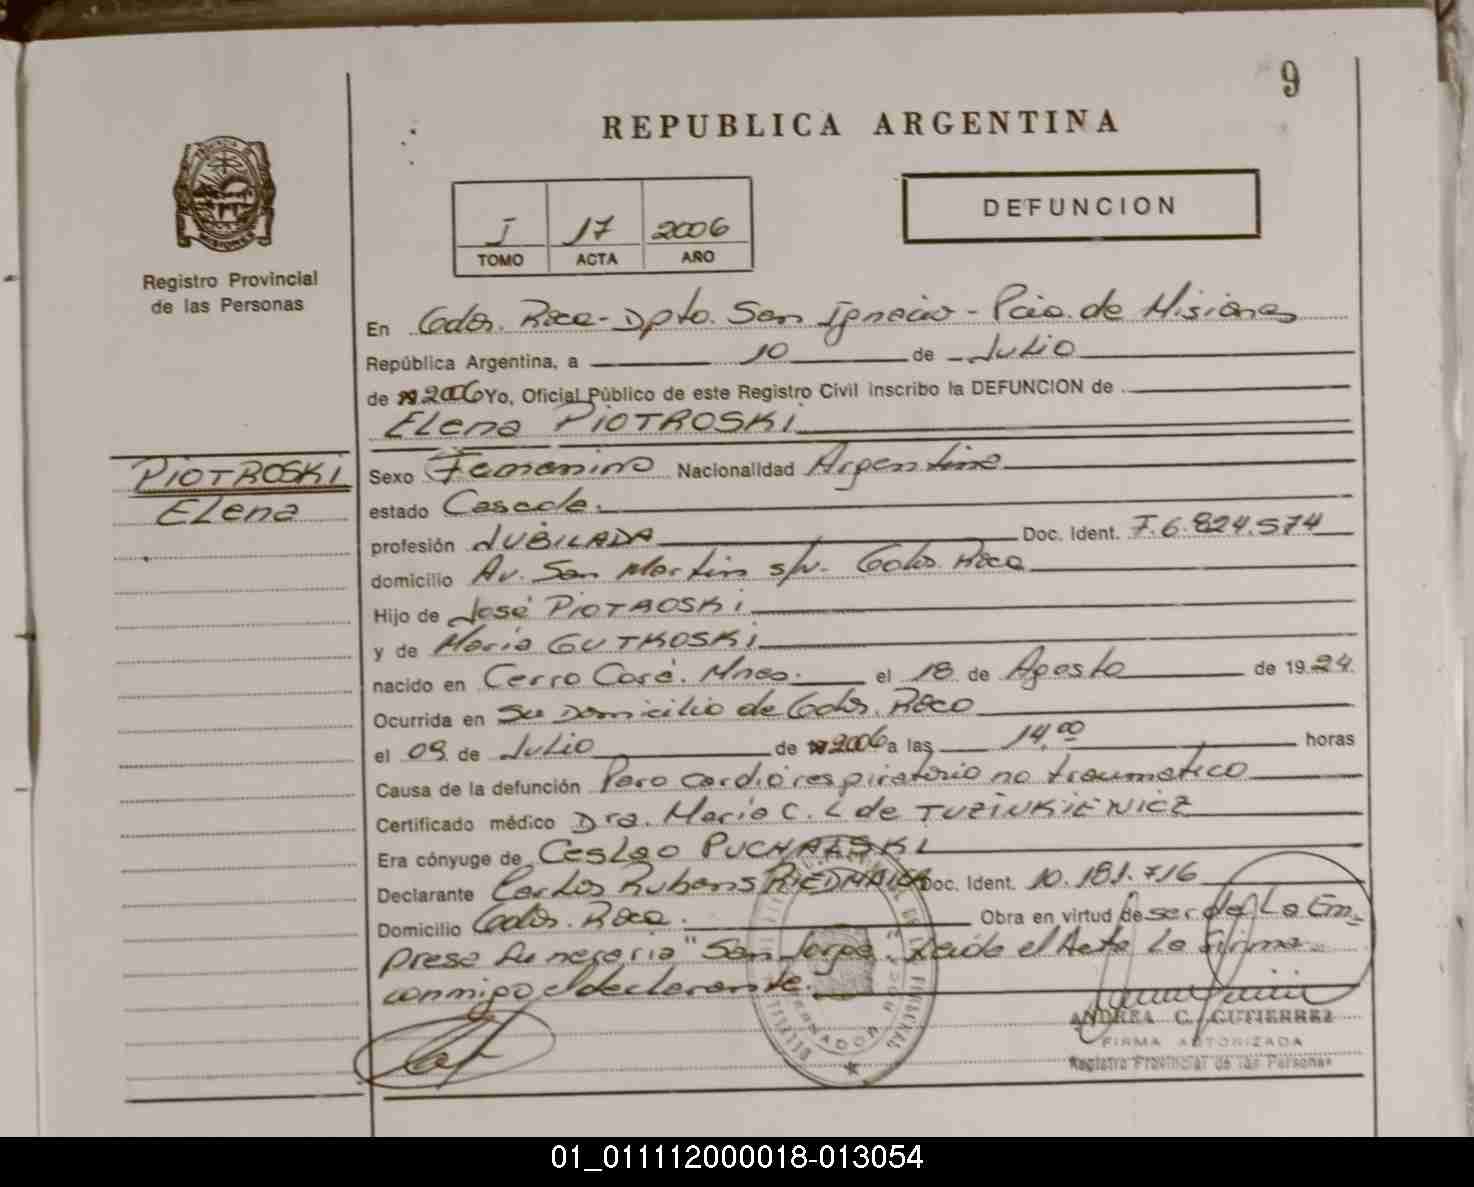 9
REPUBLICA ARGENTINA
DEFUNCION
I 17 2006
TOMO ACTA AÑO
Registro Provincial
de las Personas
MISIONES
En Gdor. Roca - Dpto. San Ignacio - Pcia. de Misiones
República Argentina, a 10 de Julio
de 2006 Yo, Oficial Público de este Registro Civil inscribo la DEFUNCION de
Elena PIOTROSKI
PIOTROSKI
Elena
Sexo Femenino Nacionalidad Argentina
estado Casada.
profesión JUBILADA Doc. Ident. F. 6.824.574
domicilio Av. San Martin s/n. Gdor. Roca
Hijo de José PIOTROSKI
y de María GUTKOSKI
nacido en Cerro Corá. Mnes. el 18 de Agosto de 1924.
Ocurrida en su Domicilio de Gdor. Roca
el 09 de Julio de 2006 a las 14,00 horas
Causa de la defunción Paro cardiorespiratorio no traumatico
Certificado médico Dra. María C. L de TUZINKIEWICZ
Era cónyuge de Ceslao PUCHALSKI
Declarante Carlos Rubens Doc. Ident. 10.181.716
Domicilio Gdor. Roca. Obra en virtud de ser de La Em-
presa funeraria "San Jorge". Leída el Acta La firma
conmigo el declarante.
ANDREA C. GUTIERREZ
FIRMA AUTORIZADA
Registro Provincial de las Personas
01_011112000018-013054